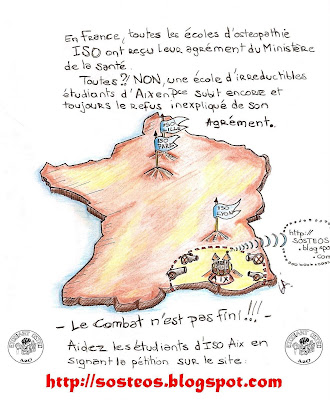 En France, toutes les écoles d'osteopathie
ISO ont reçu leur agrément du Ministère
de la santé.
Toutes?! NON, une école d'irreductibles
étudiants d'Aix en Pce subit encore et
toujours le refus inexpliqué de son
Agrément.
ISO
LILLE
ISO
PARIS
ISO
LYON
http://
SOSTEOS
.blogspot
.com
AIX
- Le Combat n'est pas fini!!! -
Aidez les étudiants d'ISO Aix en
signant la pétition sur le site:
http://sosteos.blogspot.com